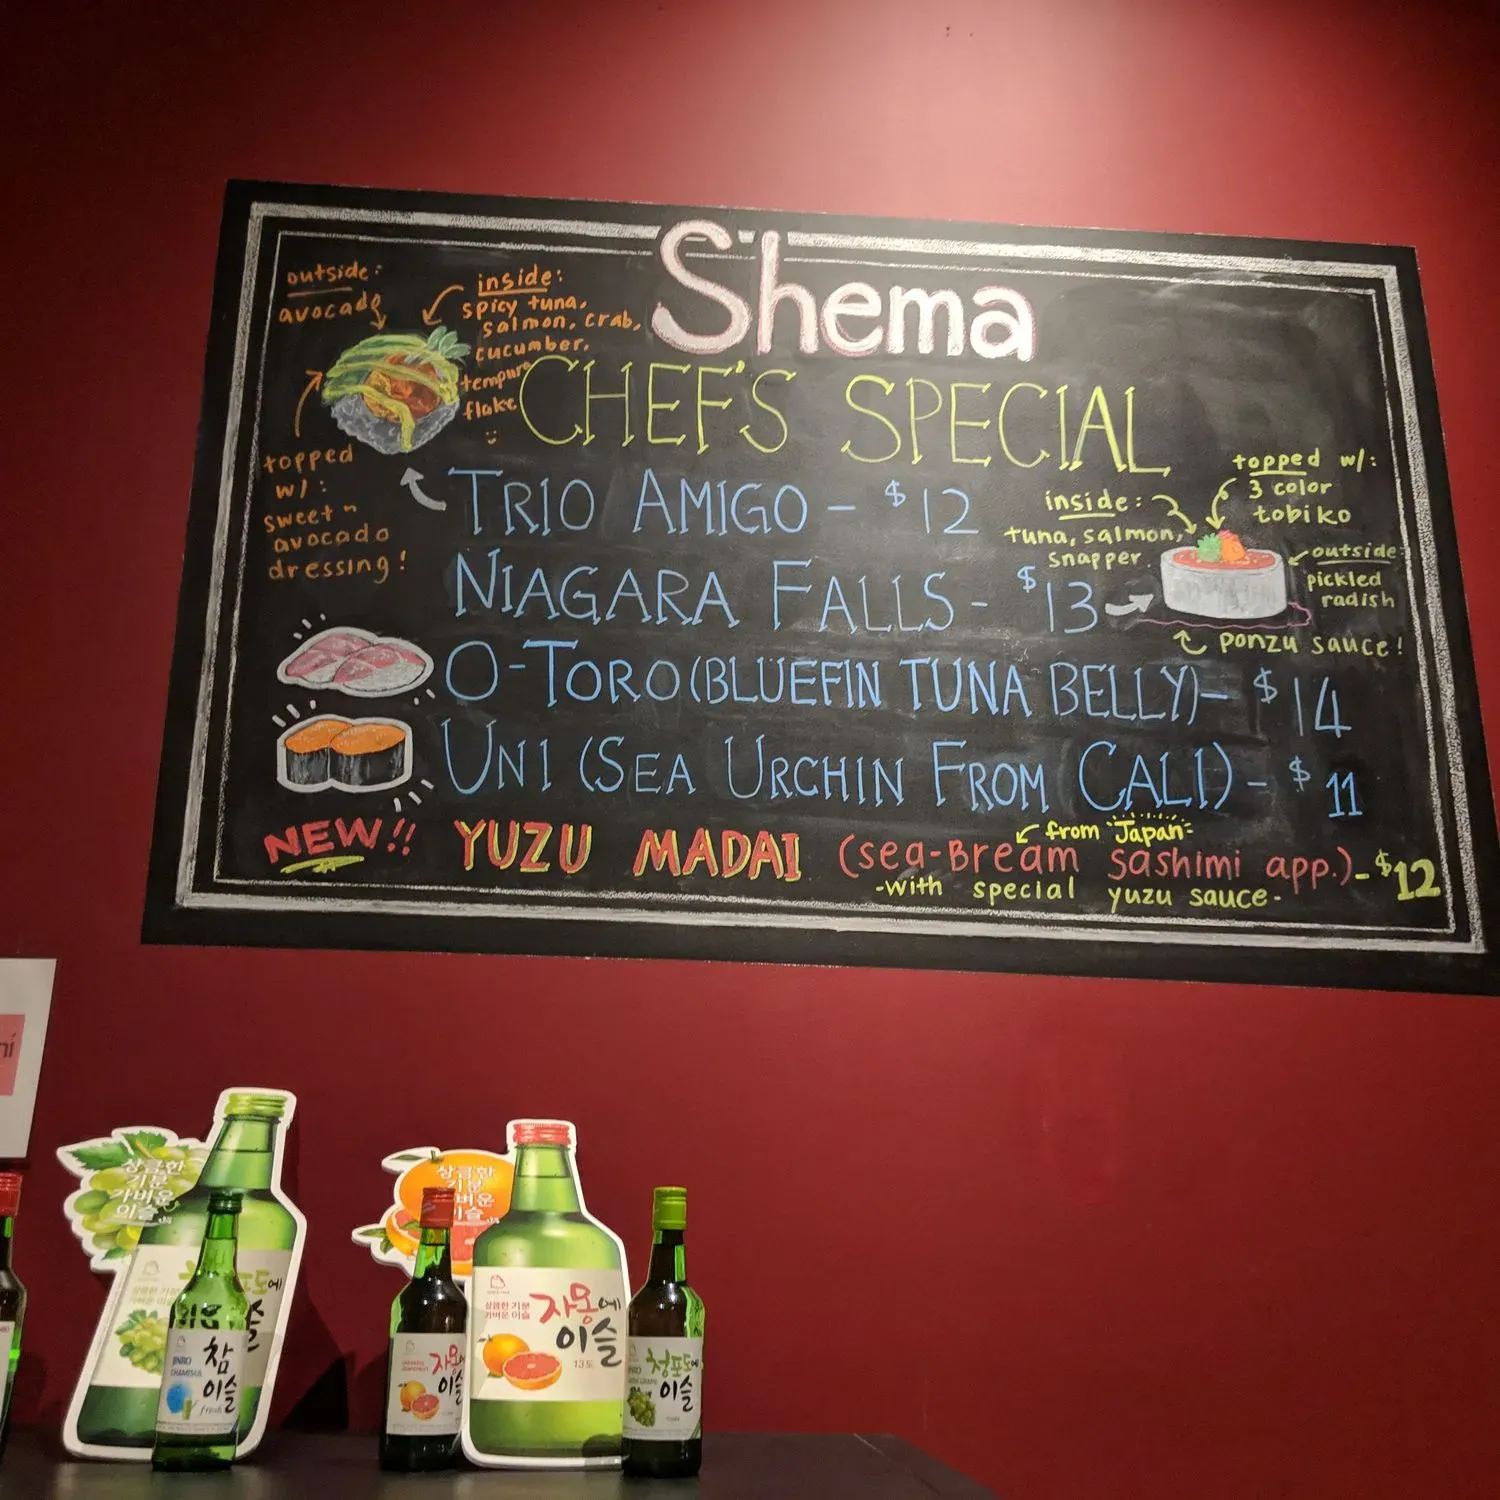 Shema
CHEF'S SPECIAL
outside:
avocado
inside:
spicy tuna,
salmon, crab,
cucumber,
tempura
flake
topped
w/:
sweet n
avocado
dressing!
TRIO AMIGO - $12
NIAGARA FALLS - $13
inside:
tuna, salmon,
snapper
topped w/:
3 color
tobiko
outside:
pickled
radish
ponzu sauce!
O-TORO (BLUEFIN TUNA BELLY) - $14
UNI (SEA URCHIN FROM CALI) - $11
NEW!! YUZU MADAI (sea-Bream sashimi app.) - $12
from Japan
-with special yuzu sauce-
상큼한
기분
가벼운
이슬
상큼한
기분
가벼운
이슬
상큼한 기분
가벼운 이슬
자몽에
이슬
13도
청포도에
JINRO
CHAMISUL
참
이슬
fresh
자몽에
이슬
청포도에
이슬